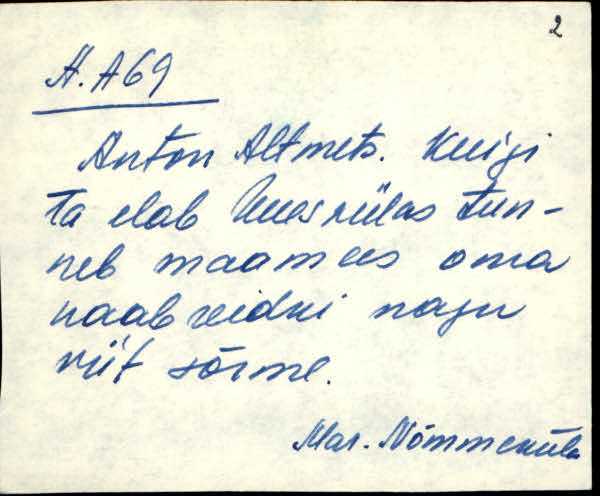 2
H. A69
Anton Altmets. Kuigi
ta elab Uuesküla tun-
neb maamees oma
naabreidki nagu
viit sõrme.
Mar. Nõmmeküla